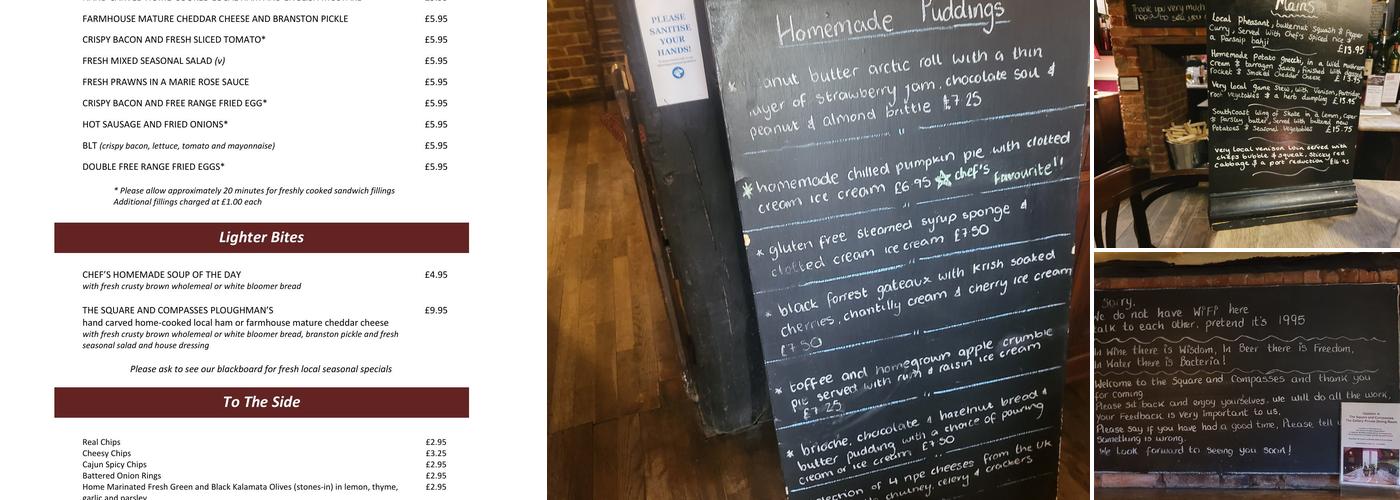 FARMHOUSE MATURE CHEDDAR CHEESE AND BRANSTON PICKLE £5.95
CRISPY BACON AND FRESH SLICED TOMATO* £5.95
FRESH MIXED SEASONAL SALAD (v) £5.95
FRESH PRAWNS IN A MARIE ROSE SAUCE £5.95
CRISPY BACON AND FREE RANGE FRIED EGG* £5.95
HOT SAUSAGE AND FRIED ONIONS* £5.95
BLT (crispy bacon, lettuce, tomato and mayonnaise) £5.95
DOUBLE FREE RANGE FRIED EGGS* £5.95
* Please allow approximately 20 minutes for freshly cooked sandwich fillings
Additional fillings charged at £1.00 each
Lighter Bites
CHEF'S HOMEMADE SOUP OF THE DAY £4.95
with fresh crusty brown wholemeal or white bloomer bread
THE SQUARE AND COMPASSES PLOUGHMAN'S £9.95
hand carved home-cooked local ham or farmhouse mature cheddar cheese
with fresh crusty brown wholemeal or white bloomer bread, branston pickle and fresh
seasonal salad and house dressing
Please ask to see our blackboard for fresh local seasonal specials
To The Side
Real Chips £2.95
Cheesy Chips £3.25
Cajun Spicy Chips £2.95
Battered Onion Rings £2.95
Home Marinated Fresh Green and Black Kalamata Olives (stones-in) in lemon, thyme, £2.95
garlic and parsley
PLEASE
SANITISE
YOUR
HANDS!
Homemade Puddings
* anut butter arctic roll with a thin
layer of strawberry jam, chocolate soil &
peanut & almond brittle £7.25
* homemade chilled pumpkin pie with clotted
cream ice cream £6.95 chef's favourite!!
* gluten free steamed syrup sponge &
clotted cream ice cream £7.50
* black forrest gateaux with kirsh soaked
cherries, chantilly cream & cherry ice cream
£7.50
* toffee and homegrown apple crumble
pie served with rum & raisin ice cream
£7.25
* brioche, chocolate & hazelnut bread &
butter pudding with a choice of pouring
cream or ice cream £7.50
lection of 4 ripe cheeses from the UK
chutney, celery & crackers
Thank you very much
hope to see you
Mains
Local Pheasant, butternut squash & Pepper
Curry, Served with Chef's Spiced rice &
a Parsnip bahji £13.95
Homemade Potato gnocchi, in a Wild mushroom
Cream & tarragon Sauce, finished with
rocket & Smoked Cheddar Cheese
Very local game Stew, with Venison, Partridge,
root Vegetables & a herb dumpling £15.95
Southcoast Wing of Skate in a Lemon, Caper
& Parsley butter, Served with buttered new
Potatoes & Seasonal Vegetables £15.75
very local venison loin served with
chips bubble & squeak, sticky red
cabbage & a port reduction £16.95
Sorry,
We do not have WIFI here
talk to each other, pretend it's 1995
In Wine there is Wisdom, In Beer there is Freedom,
In Water there is Bacteria!
Welcome to the Square and Compasses and thank you
for coming
Please sit back and enjoy yourselves. we will do all the work,
your Feedback is very important to us,
Please say if you have had a good time, Please tell u
Something is wrong.
We look forward to seeing you soon!
The Square and Compasses